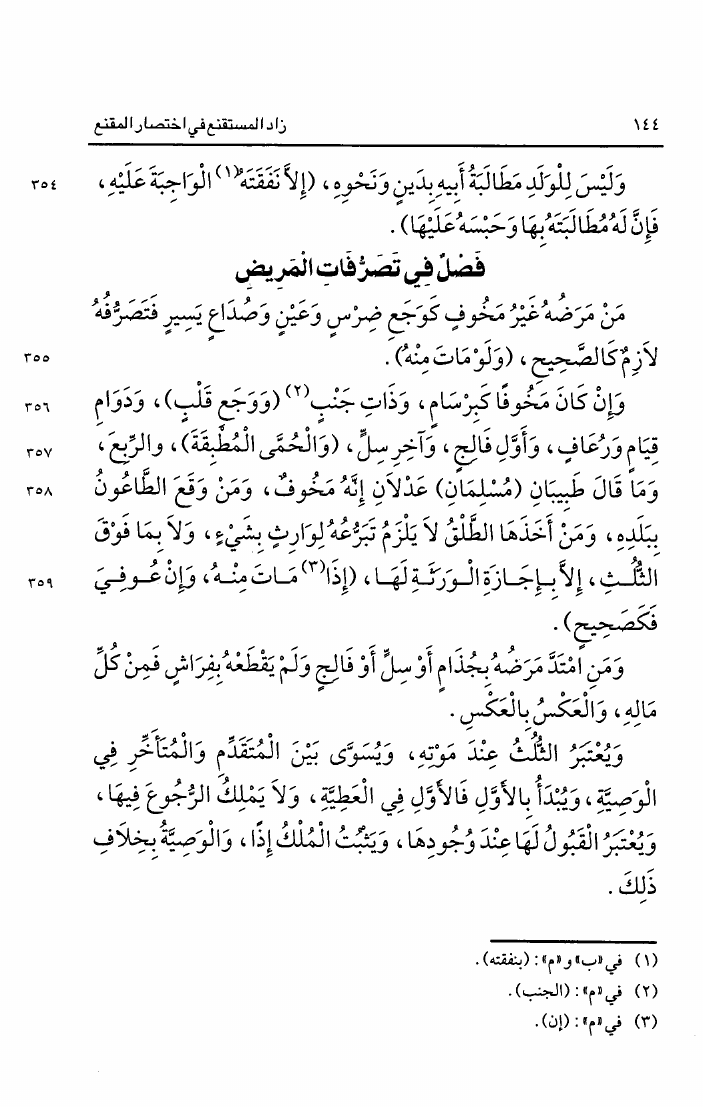 ١٤٤ زاد المستقنع في اختصار المقنع
وَلَيْسَ لِلْوَلَدِ مَطَالَبَةُ أَبِيهِ بِدَينٍ وَنَحْوِهِ، (إِلاَّ نَفَقَتَهُ(١) الْوَاجِبَةَ عَلَيْهِ، ٣٥٤
فَإِنَّ لَهُ مُطَالَبَتَهُ بِهَا وَحَبْسَهُ عَلَيْهَا).
فَصْلٌ فِي تَصَرُّفَاتِ الْمَرِيضِ
مَنْ مَرَضُهُ غَيْرُ مَخُوفٍ كَوَجَعِ ضِرْسٍ وَعَيْنٍ وَصُدَاعٍ يَسِيرٍ فَتَصَرُّفُهُ
لاَزِمٌ كَالصَّحِيحِ، (وَلَوْ مَاتَ مِنْهُ). ٣٥٥
وَإِنْ كَانَ مَخُوفًا كَبِرْسَامٍ، وَذَاتِ جَنْبٍ(٢) (وَوَجَعِ قَلْبٍ)، وَدَوَامِ ٣٥٦
قِيَامٍ وَرُعَافٍ، وَأَوَّلِ فَالِجٍ، وَآخِرِ سِلٍّ، (وَالْحُمَّى الْمُطْبِقَةَ)، والرِّبعَ، ٣٥٧
وَمَا قَالَ طَبِيبَانِ (مُسْلِمَانِ) عَدْلاَنِ إِنَّهُ مَخُوفٌ، وَمَنْ وَقَعَ الطَّاعُونُ ٣٥٨
بِبَلَدِهِ، وَمَنْ أَخَذَهَا الطَّلْقُ لاَ يَلْزَمُ تَبَرُّعُهُ لِوَارِثٍ بِشَيْءٍ، وَلاَ بِمَا فَوْقَ
الثُّلُثِ، إِلاَّ بِإِجَازَةِ الْوَرَثَةِ لَهَا، (إِذَا(٣) مَاتَ مِنْهُ، وَإِنْ عُوفِيَ ٣٥٩
فَكَصَحِيحٍ).
وَمَنِ امْتَدَّ مَرَضُهُ بِجُذَامٍ أَوْ سِلٍّ أَوْ فَالِجٍ وَلَمْ يَقْطَعْهُ بِفِرَاشٍ فَمِنْ كُلِّ
مَالِهِ، وَالْعَكْسُ بِالْعَكْسِ.
وَيُعْتَبَرُ الثُّلُثُ عِنْدَ مَوْتِهِ، وَيُسَوَّى بَيْنَ الْمُتَقَدِّمِ وَالْمُتَأَخِّرِ فِي
الْوَصِيَّةِ، وَيُبْدَأُ بِالأَوَّلِ فَالأَوَّلِ فِي الْعَطِيَّةِ، وَلاَ يَمْلِكُ الرُّجُوعَ فِيهَا،
وَيُعْتَبَرُ الْقَبُولُ لَهَا عِنْدَ وُجُودِهَا، وَيَثْبُتُ الْمُلْكُ إِذًا، وَالْوَصِيَّةُ بِخِلاَفِ
ذَلِكَ.
(١) في «ب» و«م»: (بنفقته).
(٢) في «م»: (الجنب).
(٣) في «م»: (إن).